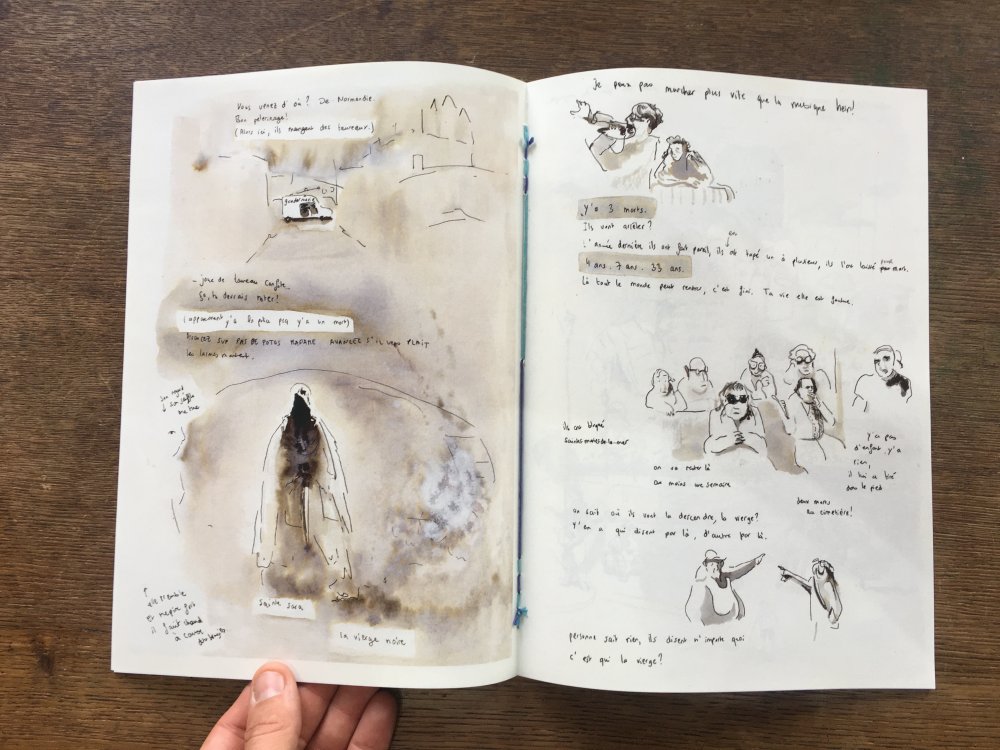 Vous venez d'où ? De Normandie.
Bon pelerinage!
(Alors ici, ils mangent des taureaux.)
gendarmerie
- joue de taureau confite.
Ça, tu devrais noter!
(apparement y'a la police pcq y'a un mort)
SUR PAS DE POTOS MADAME AVANCEZ S'IL VOUS PLAIT
les larmes montent.
son regard
↓ son souffle
me tue
↑
elle tremble
et respire fort
il fait chaud
à crever
Sainte Sara
la vierge noire
Je peux pas marcher plus vite que la musique hein!
y'a 3 morts.
Ils vont arrêter?
L'année dernière ils ont fait pareil, ils en ont tapé un à plusieur, ils l'ont laissé pour mort.
4 ans. 7 ans. 33 ans.
Là tout le monde peut rentrer, c'est fini. Ta vie elle est foutue.
Ils ont bloqué
Saintes-maries-de-la-mer
on va rester là
au moins une semaine
y'a pas
d'enfant, y'a
rien,
il lui a tiré
dans le pied
deux morts
au cimetière!
on sait où ils vont la descendre, la vierge?
Y'en a qui disent par là, d'autre par là.
personne sait rien, ils disent n'importe quoi
c'est qui la vierge?